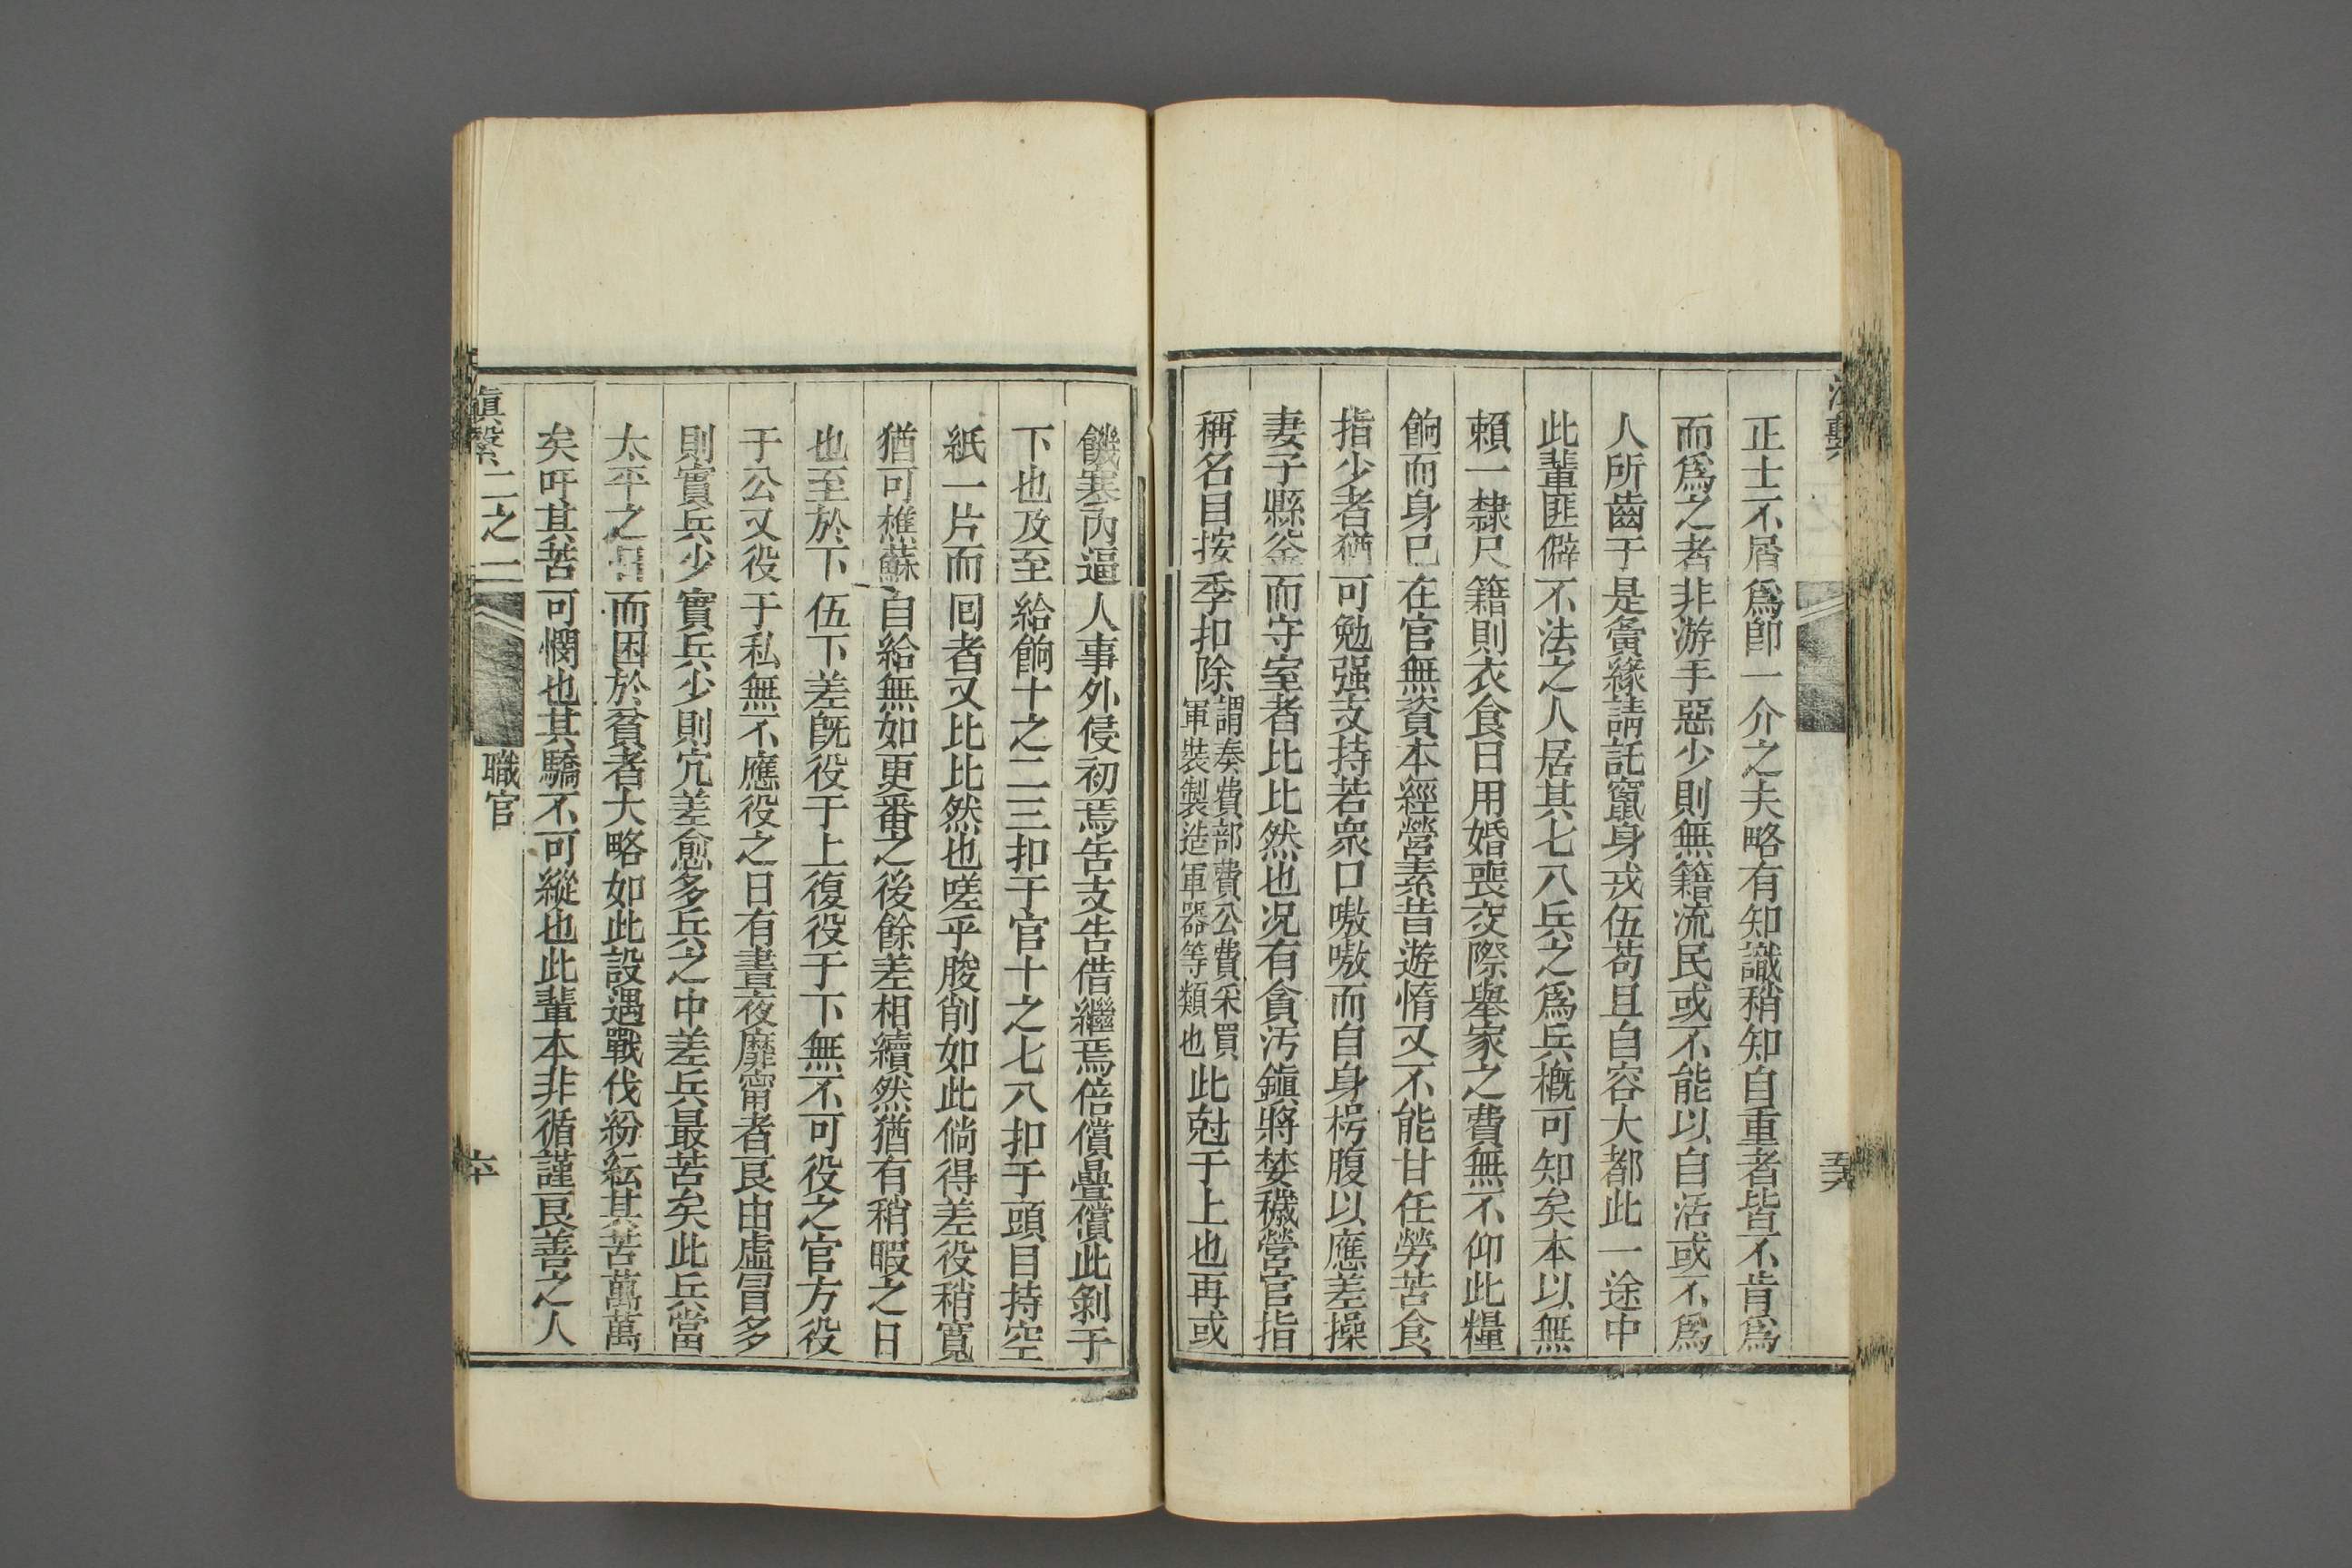 正士不屑爲卽一介之夫略有知識稍知自重者皆不肯爲
而爲之者非游手惡少則無籍流民或不能以自活或不爲
人所齒于是夤緣請託竄身戎伍苟且自容大都此一途中
此輩匪僻不法之人居其七八兵之爲兵槪可知矣本以無
賴一隸尺籍則衣食日用婚喪交際舉家之費無不仰此糧
餉而身已在官無資本經營素昔遊惰又不能甘任勞苦食
指少者猶可勉强支持若衆口嗷嗷而自身枵腹以應差操
妻子縣釜而守室者比比然也况有貪汚鎭將婪穢營官指
稱名目按季扣除謂奏費部費公費采買軍裝製造軍器等類也此尅于上也再或
饑寒內逼人事外侵初焉告支告借繼焉倍償疊償此剝于
下也及至給餉十之二三扣于官十之七八扣于頭目持空
紙一片而囘者又比比然也嗟乎朘削如此倘得差役稍寬
猶可樵蘇自給無如更番之後餘差相續然猶有稍暇之日
也至於下伍下差旣役于上復役于下無不可役之官方役
于公又役于私無不應役之日有晝夜靡甯者良由虛冒多
則實兵少實兵少則宂差愈多兵之中差兵最苦矣此丘當
太平之而困於貧者大略如此設遇戰伐紛紜其苦萬萬
矣吁其苦可憫也其驕不可縱也此輩本非循謹良善之人
滇繫二之二 職官 六十